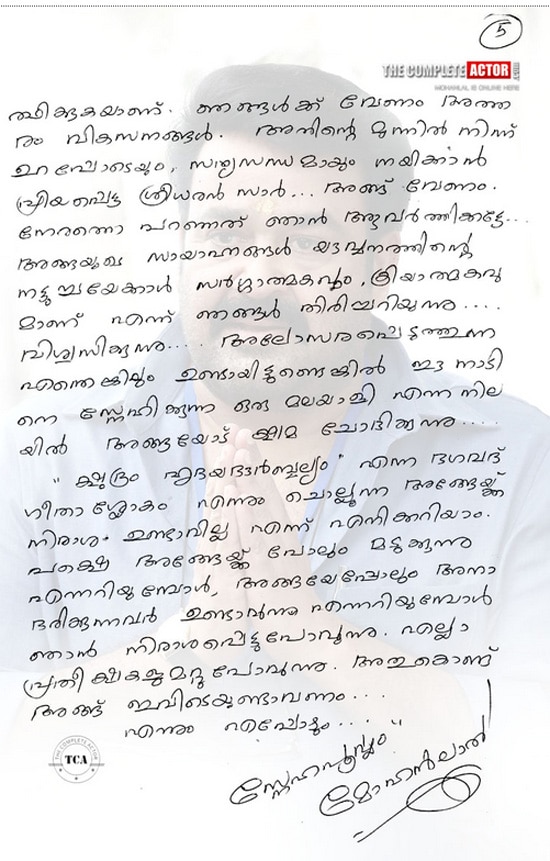 5
THE COMPLETE ACTOR
MOHANLAL IS ONLINE HERE
ത്ഥിക്കുകയാണ്. ഞങ്ങൾക്ക് വേണം അത്ത
രം വികസനങ്ങൾ. അതിന്റെ മുന്നിൽ നിന്ന്
ഉറപ്പോടെയും, സത്യസന്ധമായും നയിക്കാൻ
പ്രിയപ്പെട്ട ശ്രീധരൻ സാർ... അങ്ങ് വേണം.
നേരത്തെ പറഞ്ഞത് ഞാൻ ആവർത്തിക്കട്ടെ...
അങ്ങയുടെ സായാഹ്നങ്ങൾ യൗവ്വനത്തിന്റെ
നട്ടുച്ചയേക്കാൾ സർഗ്ഗാത്മകവും, ക്രിയാത്മകവു
മാണ് എന്ന് ഞങ്ങൾ തിരിച്ചറിയുന്നു....
വിശ്വസിക്കുന്നു.... അലോസരപ്പെടുത്തുന്ന
എന്തെങ്കിലും ഉണ്ടായിട്ടുണ്ടെങ്കിൽ ഈ നാടി
നെ സ്നേഹിക്കുന്ന ഒരു മലയാളി എന്ന നില
യിൽ അങ്ങയോട് ക്ഷമ ചോദിക്കുന്നു....
"ക്ഷുദ്രം ഹൃദയദൗർബ്ബല്യം" എന്ന ഭഗവദ്
ഗീതാ ശ്ലോകം എന്നും ചൊല്ലുന്ന അങ്ങേയ്ക്ക്
നിരാശ ഉണ്ടാവില്ല എന്ന് എനിക്കറിയാം.
പക്ഷെ അങ്ങേയ്ക്ക് പോലും മടുക്കുന്നു
എന്നറിയുമ്പോൾ, അങ്ങയേപ്പോലും അനാ
ദരിക്കുന്നവർ ഉണ്ടാവുന്നു എന്നറിയുമ്പോൾ
ഞാൻ നിരാശപ്പെട്ടുപോവുന്നു. എല്ലാ
പ്രതീക്ഷകളുമറ്റുപോവുന്നു. അതുകൊണ്ട്
അങ്ങ് ഇവിടെയുണ്ടാവണം...
എന്നും എപ്പോഴും...."
സ്നേഹപൂർവ്വം
മോഹൻലാൽ
THE COMPLETE ACTOR
TCA